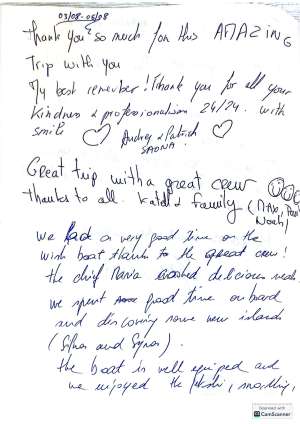 03/08-05/08
Thank you so much for this AMAZING
Trip with you
My best remember! Thank you for all your
Kindness & professionalism 24/24. with
smile
Audrey & Patrick
SAONA.
Great trip with a great crew
Thanks to all. Katel & family (Max,
Noah)
We had a very good time on the
wish boat thanks to the great crew!
the chief Maria cooked delicious meals.
we spent good time on board
and discovering some new islands
(Sifnos and Syros).
the boat is well equiped and
we enjoyed the
Scanned with
CamScanner